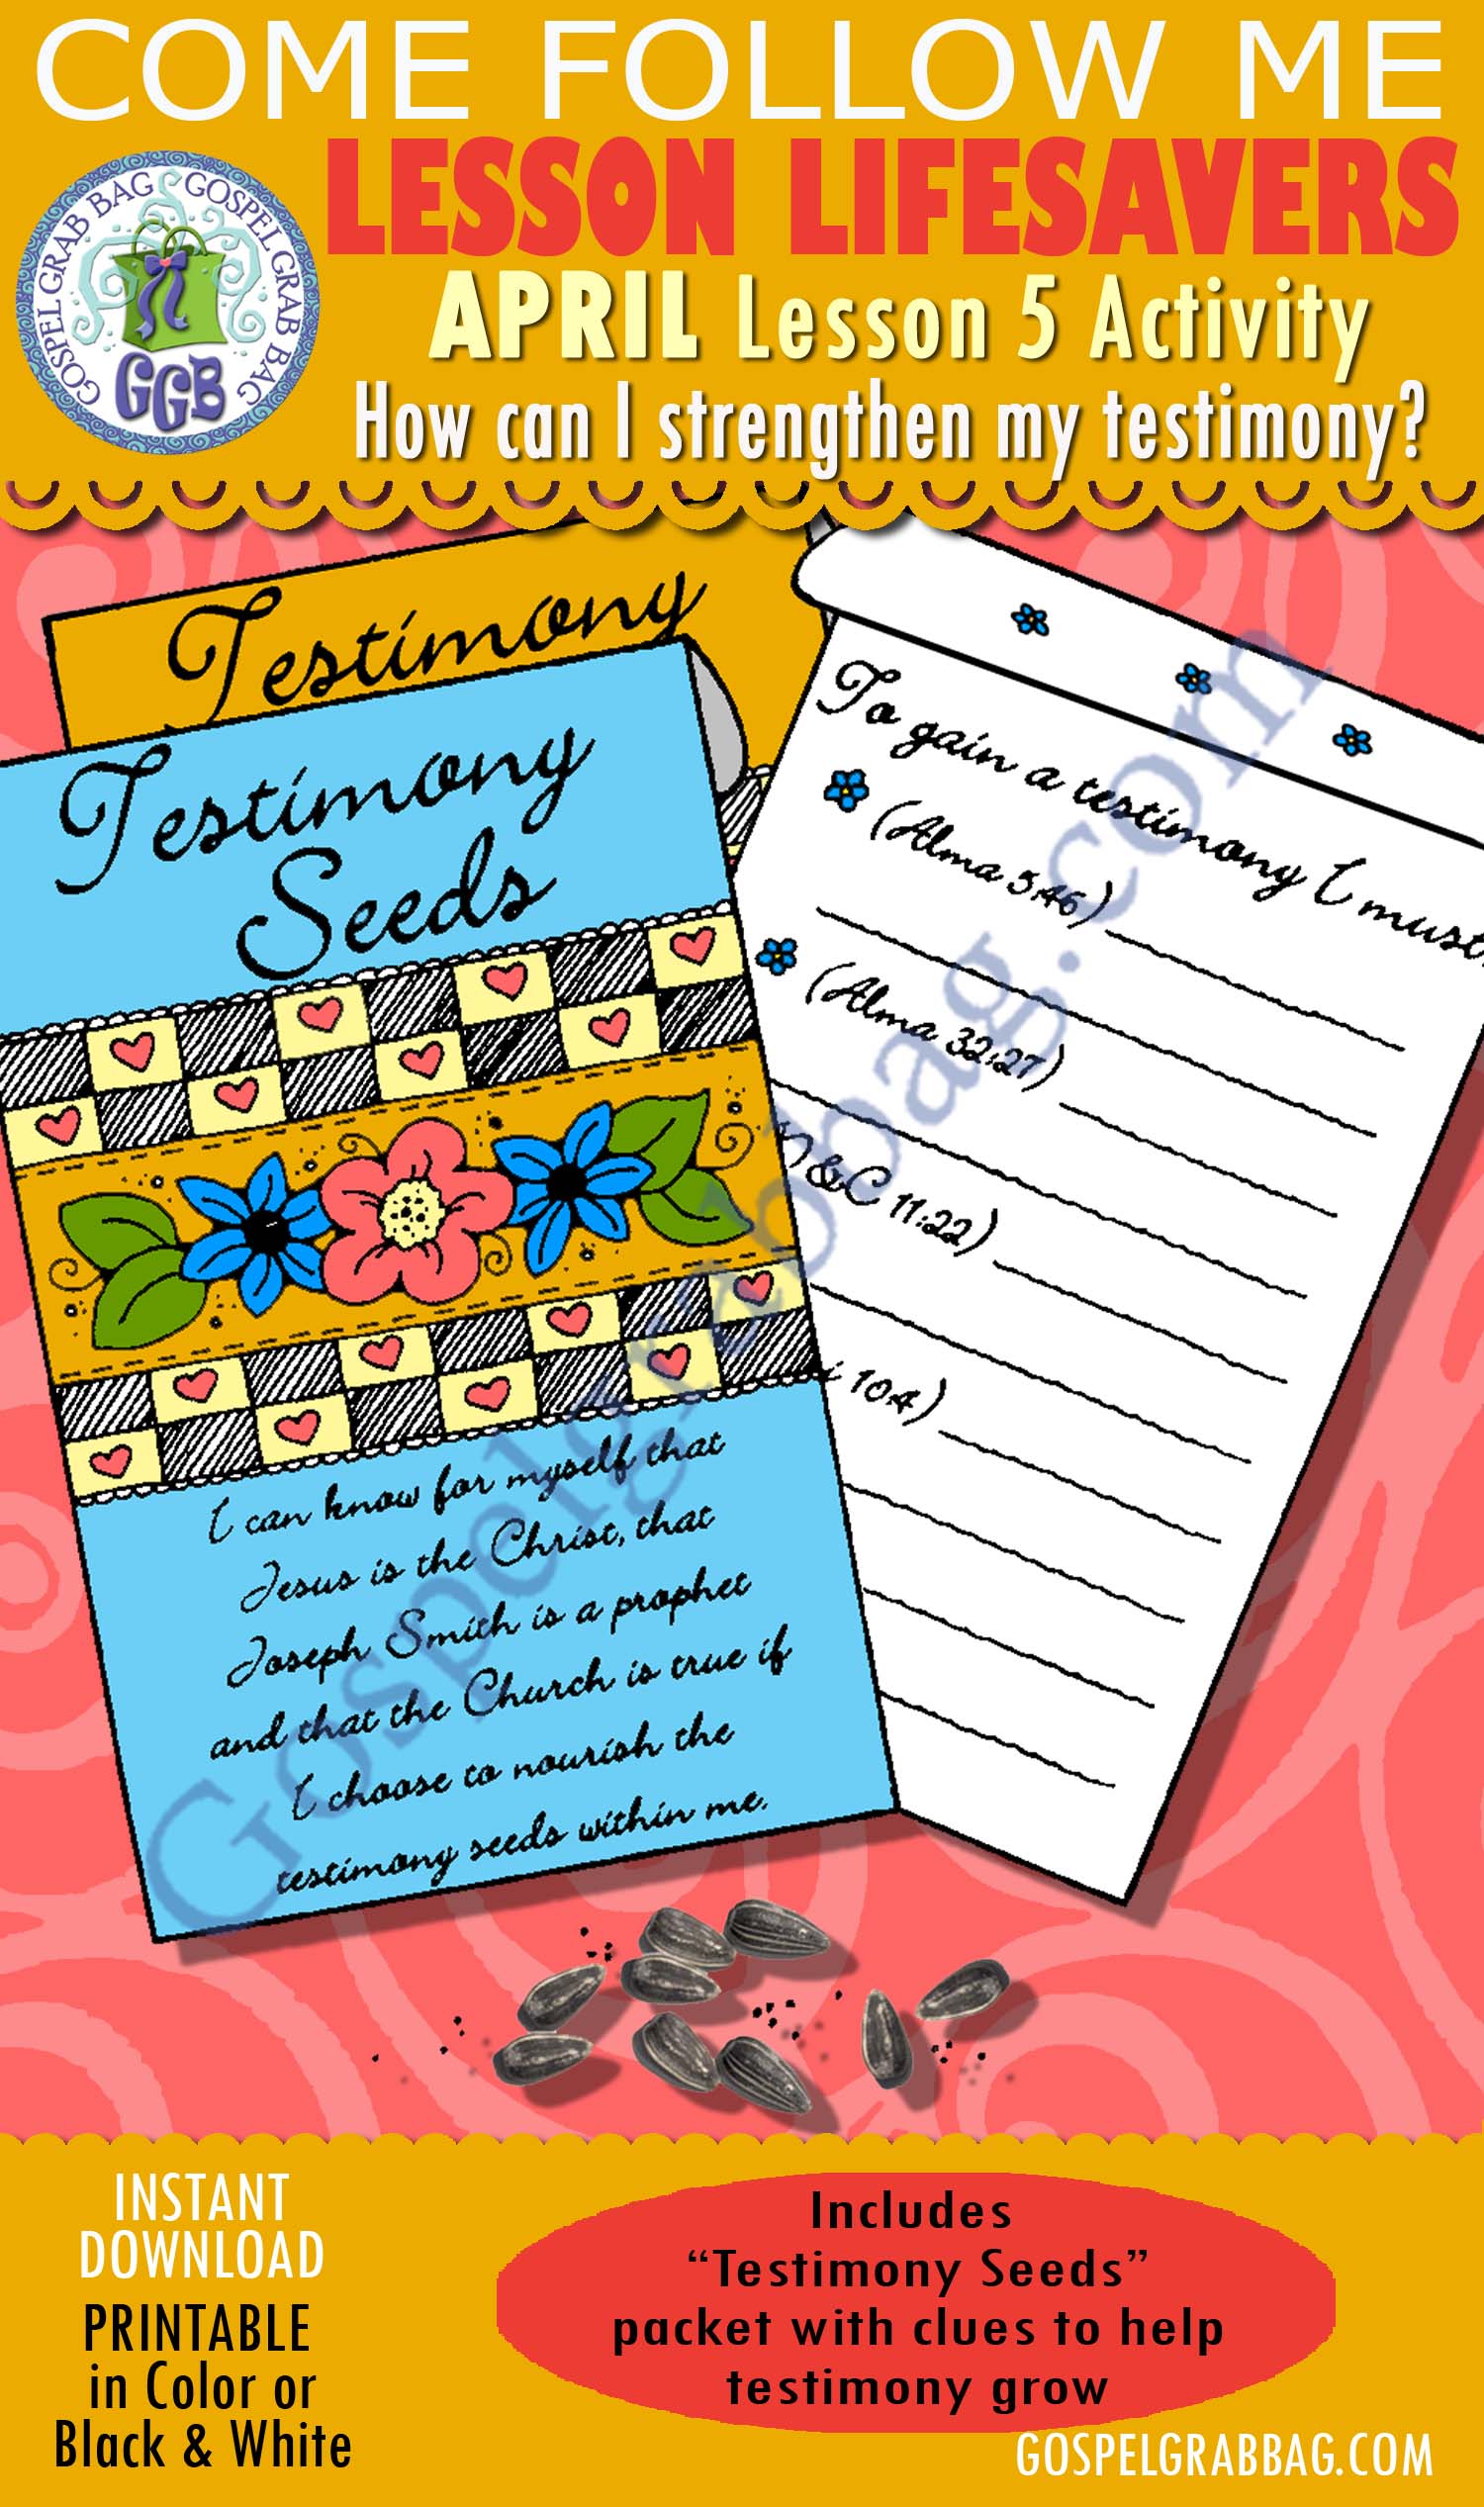 COME FOLLOW ME
LESSON LIFESAVERS
GOSPEL GRAB BAG GOSPEL GRAB BAG
GGB
APRIL Lesson 5 Activity
How can I strengthen my testimony?
Testimony
Testimony
Seeds
I can know for myself that
Jesus is the Christ, that
Joseph Smith is a prophet
and that the Church is true if
I choose to nourish the
testimony seeds within me.
To gain a testimony I must
(Alma 5:46)
(Alma 32:27)
D&C 11:22)
10:4)
Gospelgrabbag.com
INSTANT
DOWNLOAD
PRINTABLE
in Color or
Black & White
Includes
“Testimony Seeds”
packet with clues to help
testimony grow
GOSPELGRABBAG.COM